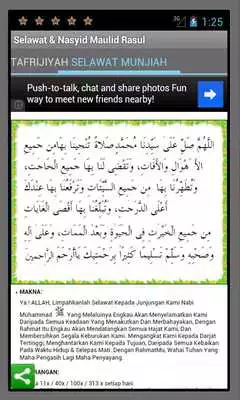 3G 1:25
Selawat & Nasyid Maulid Rasul
TAFRIJIYAH SELAWAT MUNJIAH
Push-to-talk, chat and share photos Fun
way to meet new friends nearby!
اَللّٰهُمَّ صَلِّ عَلَى سَيِّدِنَا مُحَمَّدٍ صَلَاةً تُنْجِيْنَا بِهَا مِنْ جَمِيْعِ
الْأَهْوَالِ وَالْآفَاتِ، وَتَقْضِى لَنَا بِهَا جَمِيْعَ الْحَاجَتِ،
وَتُطَهِّرُنَا بِهَا مِنْ جَمِيْعِ السَّيِّئَاتِ وَتَرْفَعُنَا بِهَا عِنْدَكَ
أَعْلَى الدَّرَجَتِ، وَتُبَلِّغُنَا بِهَا أَقْصَى الْغَايَاتِ
مِنْ جَمِيْعِ الْخَيْرَتِ فِى الْحَيٰوةِ وَبَعْدَ الْمَمَاتِ، وَعَلَى آلِهِ
وَصَحْبِهِ وَسَلِّمْ تَسْلِيْمًا كَثِيْرًا بِرَحْمَتِكَ يَا أَرْحَمَ الرَّاحِمِيْنَ
MAKNA:
Ya ! ALLAH, Limpahkanlah Selawat Kepada Junjungan Kami Nabi
Muhammad ﷺ Yang Melaluinya Engkau Akan Menyelamatkan Kami
Daripada Semua Keadaan Yang Menakutkan Dan Merbahayakan, Dengan
Rahmat Itu Engkau Akan Mendatangkan Semua Hajat Kami, Dan
Membersihkan Segala Keburukan Kami, Mengangkat Kami Kepada Darjat
Tertinggi, Menghantarkan Kami Kepada Tujuan, Daripada Semua Kebaikan
Pada Waktu Hidup & Selepas Mati. Dengan RahmatMu, Wahai Tuhan Yang
Maha Pengasih Lagi Maha Penyayang.
11x / 40x / 100x / 313 x setiap hari.